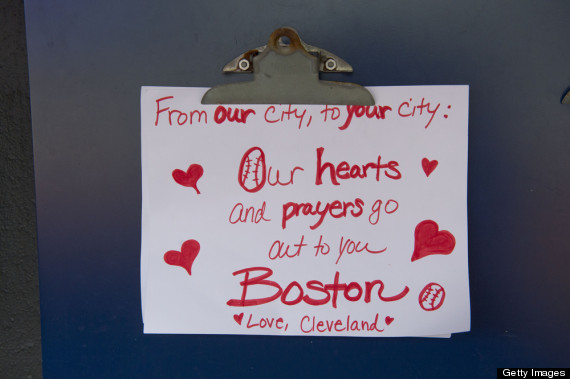 From our city, to your city:
Our hearts
and prayers go
out to you
Boston
Love, Cleveland
Getty Images